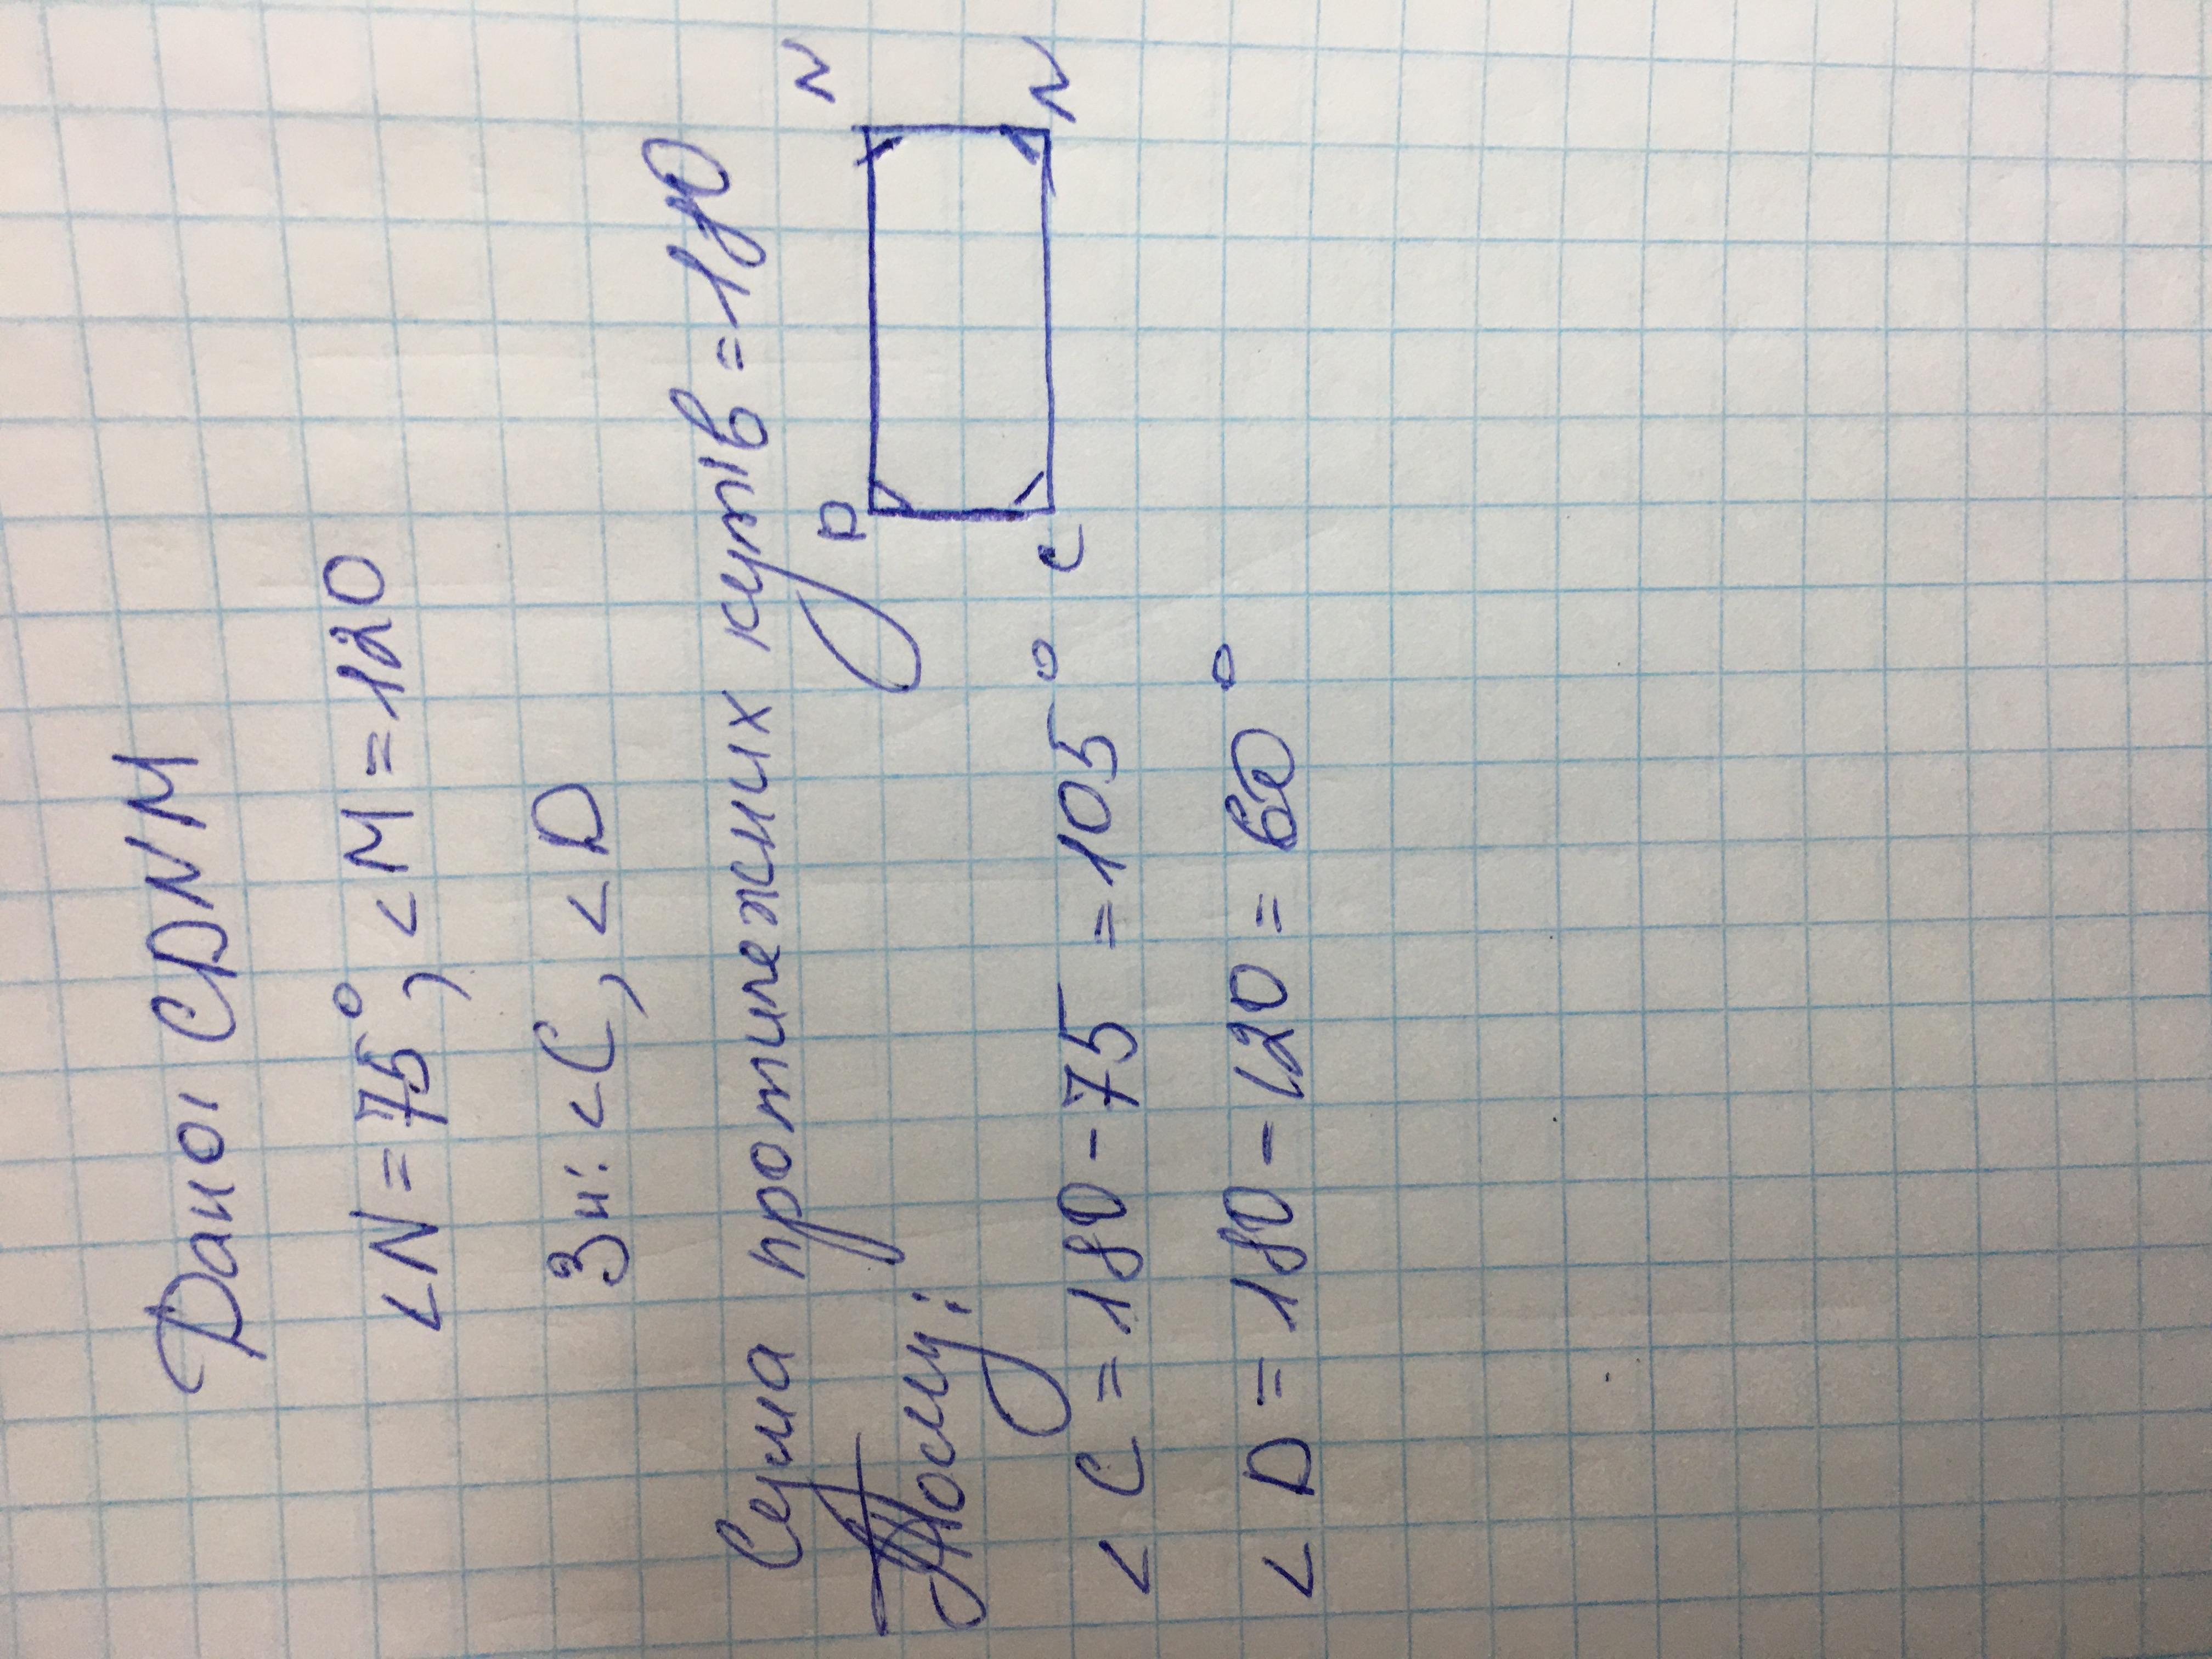 Дано: CDNM
∠N = 75°, ∠M = 120
Зн: ∠C, ∠D
Сума протилежних кутів = 180
Тому:
D N
C N
∠C = 180 - 75 = 105°
∠D = 180 - 120 = 60°